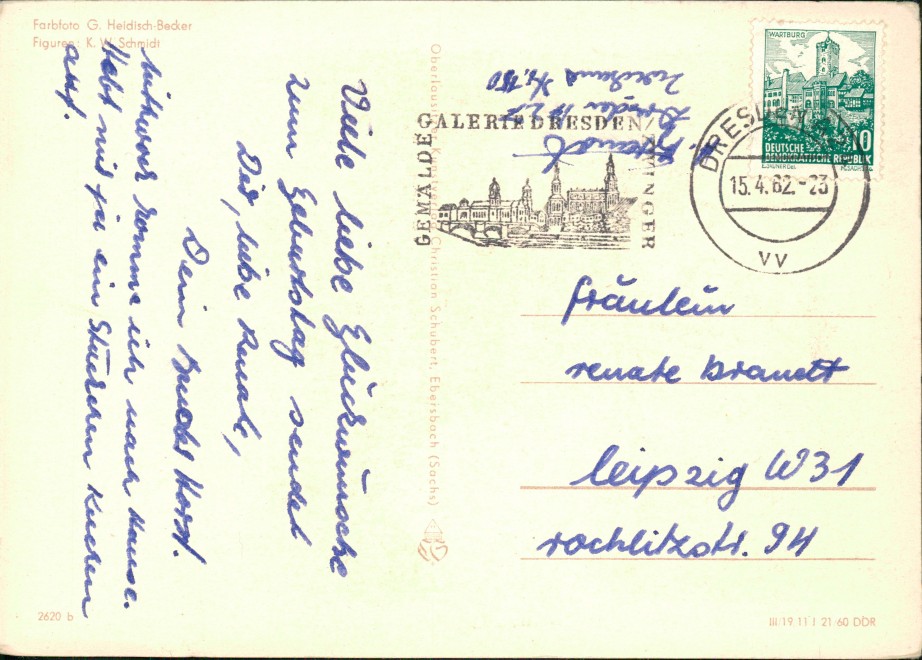 Farbfoto G. Heidisch-Becker
Figuren: K. W. Schmidt
Viele liebe Glückwünsche
zum Geburtstag sendet
Dir, liebe Renate,
Dein Bruder Horst.
Mittwoch komme ich nach Hause.
Hebt mir ja ein Stückchen Kuchen
auf.
2620 b
Oberlausitzer Kunstverlag Christian Schubert, Ebersbach (Sachs)
Dresden
GEMÄLDE
GALERIE DRESDEN/
ZWINGER
DRESDEN
15.4.62.-23
VV
WARTBURG
10
DEUTSCHE
DEMOKRATISCHE REPUBLIK
Fräulein
Renate Brandt
Leipzig W31
Rochlitzstr. 94
III/19 11 J 21 60 DDR